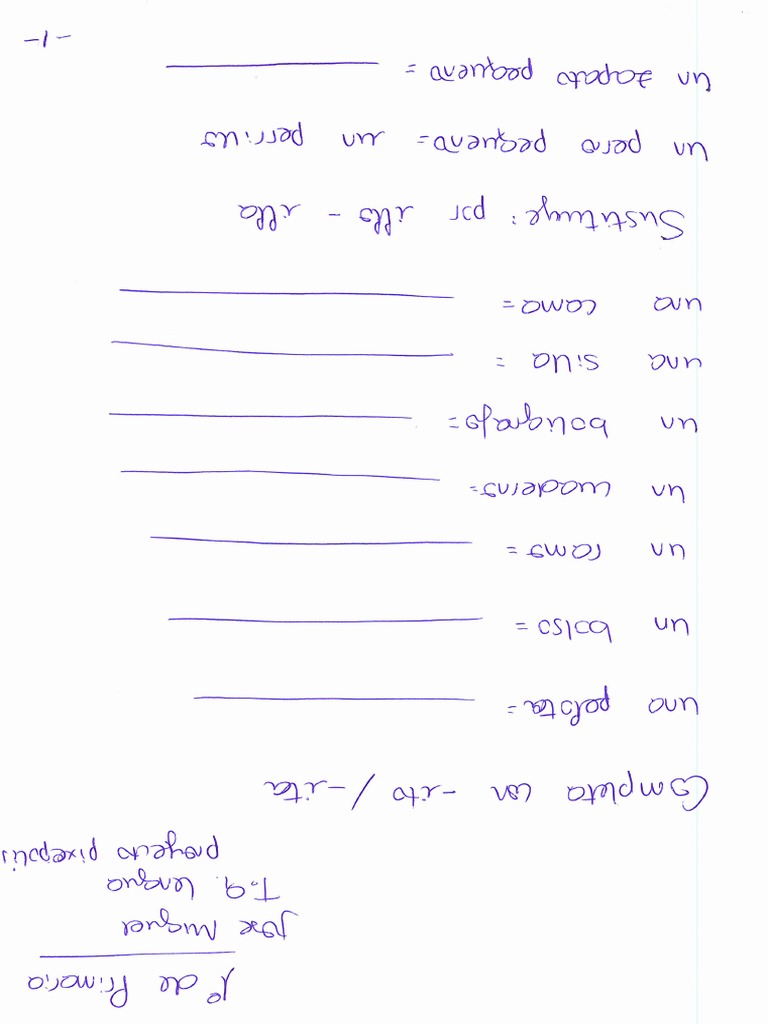 1º de Primaria
José Miguel
T.9. Lengua
proyecto pixepolis
Completa con -ito / -ita
una pelota=
un bolso=
un ramo=
un cuaderno=
un boligrafo=
una silla =
una cama=
Sustituye: por illo - illa
un pero pequeno= un perrillo
un zapato pequeno =
-1-